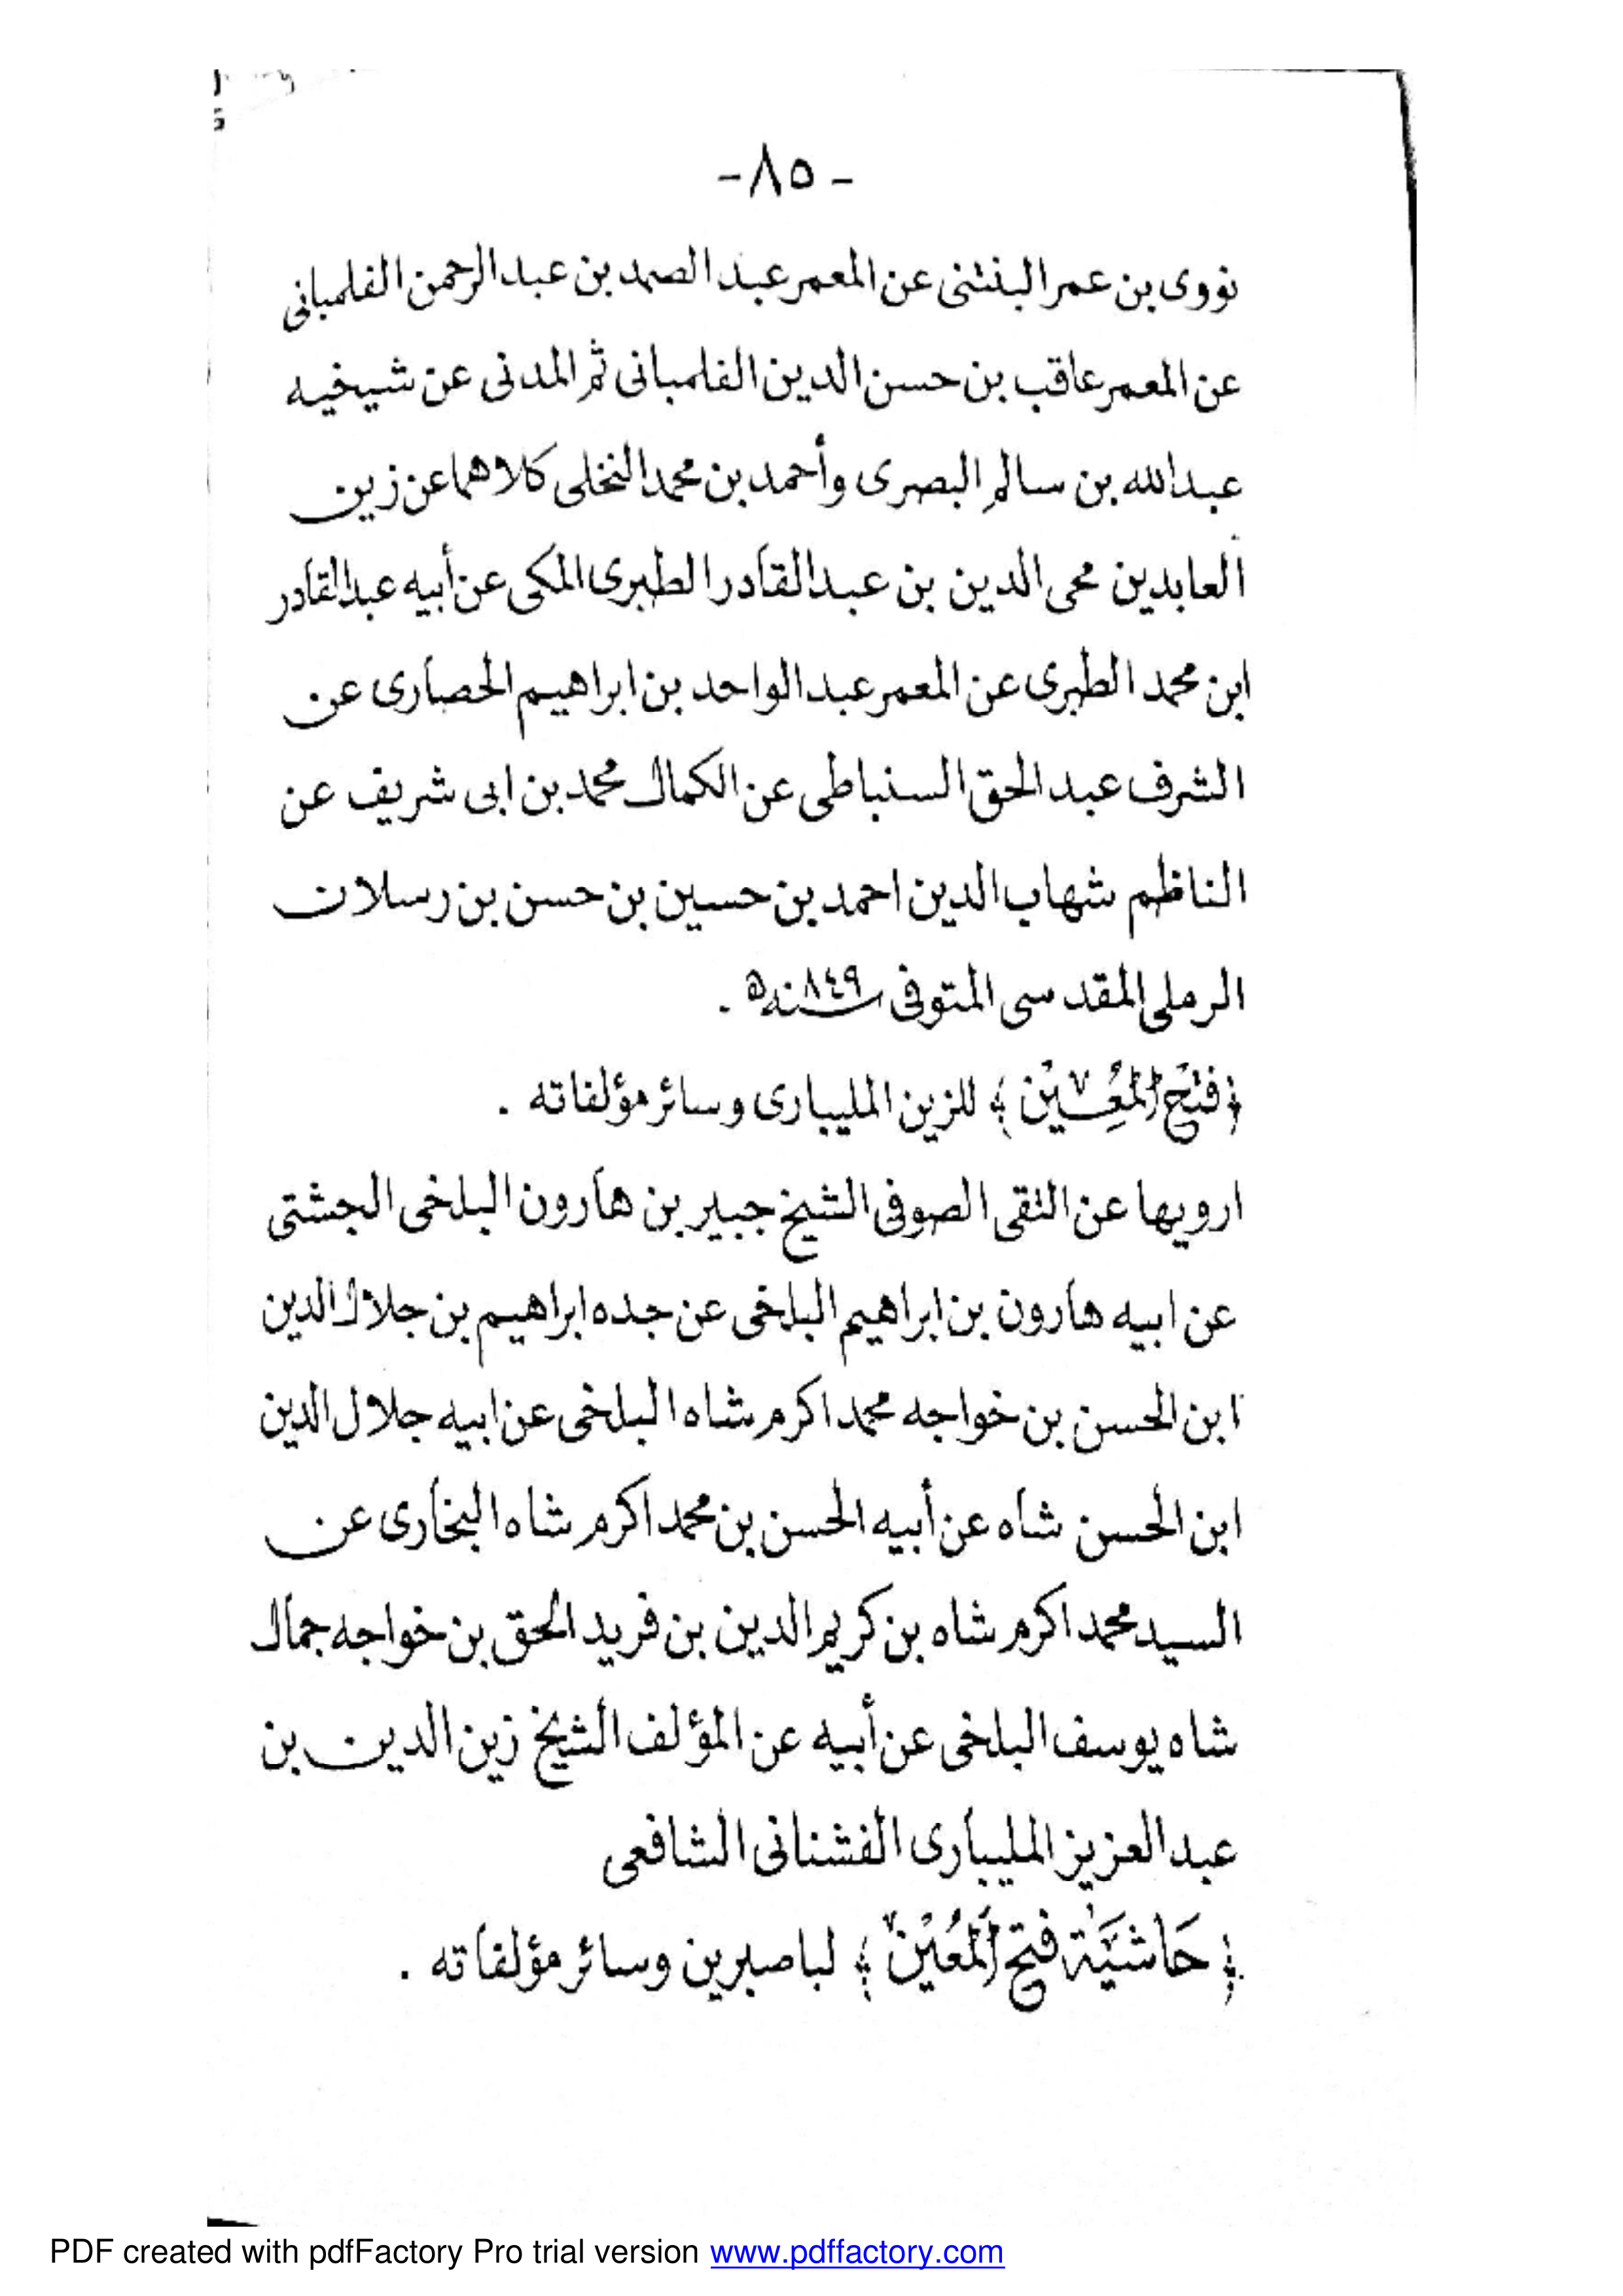 -٨٥-
نووى بن عمر البنتنى عن المعمر عبد الصمد بن عبد الرحمن الفلمبانى
عن المعمر عاقب بن حسن الدين الفلمبانى ثم المدنى عن شيخيه
عبد الله بن سالم البصرى وأحمد بن محمد النخلى كلاهما عن زين
العابدين محى الدين بن عبد القادر الطبرى المكى عن أبيه عبد القادر
ابن محمد الطبرى عن المعمر عبد الواحد بن ابراهيم الحصارى عن
الشرف عبد الحق السنباطى عن الكمال محمد بن ابى شريف عن
الناظم شهاب الدين احمد بن حسين بن حسن بن رسلان
الرملى المقدسى المتوفى سنة ٨٤٩ ه .
﴿فَتْحُ الْمُعِيْنْ﴾ للزين المليبارى وسائر مؤلفاته .
ارويها عن التقى الصوفى الشيخ جبير بن هارون البلخى الجشتى
عن ابيه هارون بن ابراهيم البلخى عن جده ابراهيم بن جلال الدين
ابن الحسن بن خواجه محمد اكرم شاه البلخى عن ابيه جلال الدين
ابن الحسن شاه عن أبيه الحسن بن محمد اكرم شاه البخارى عن
السيد محمد اكرم شاه بن كريم الدين بن فريد الحق بن خواجه جمال
شاه يوسف البلخى عن أبيه عن المؤلف الشيخ زين الدين بن
عبد العزيز المليبارى الفشنانى الشافعى
﴿حَاشِيَة فتح الْمُعِيْنْ﴾ لباصبرين وسائر مؤلفاته .
PDF created with pdfFactory Pro trial version www.pdffactory.com